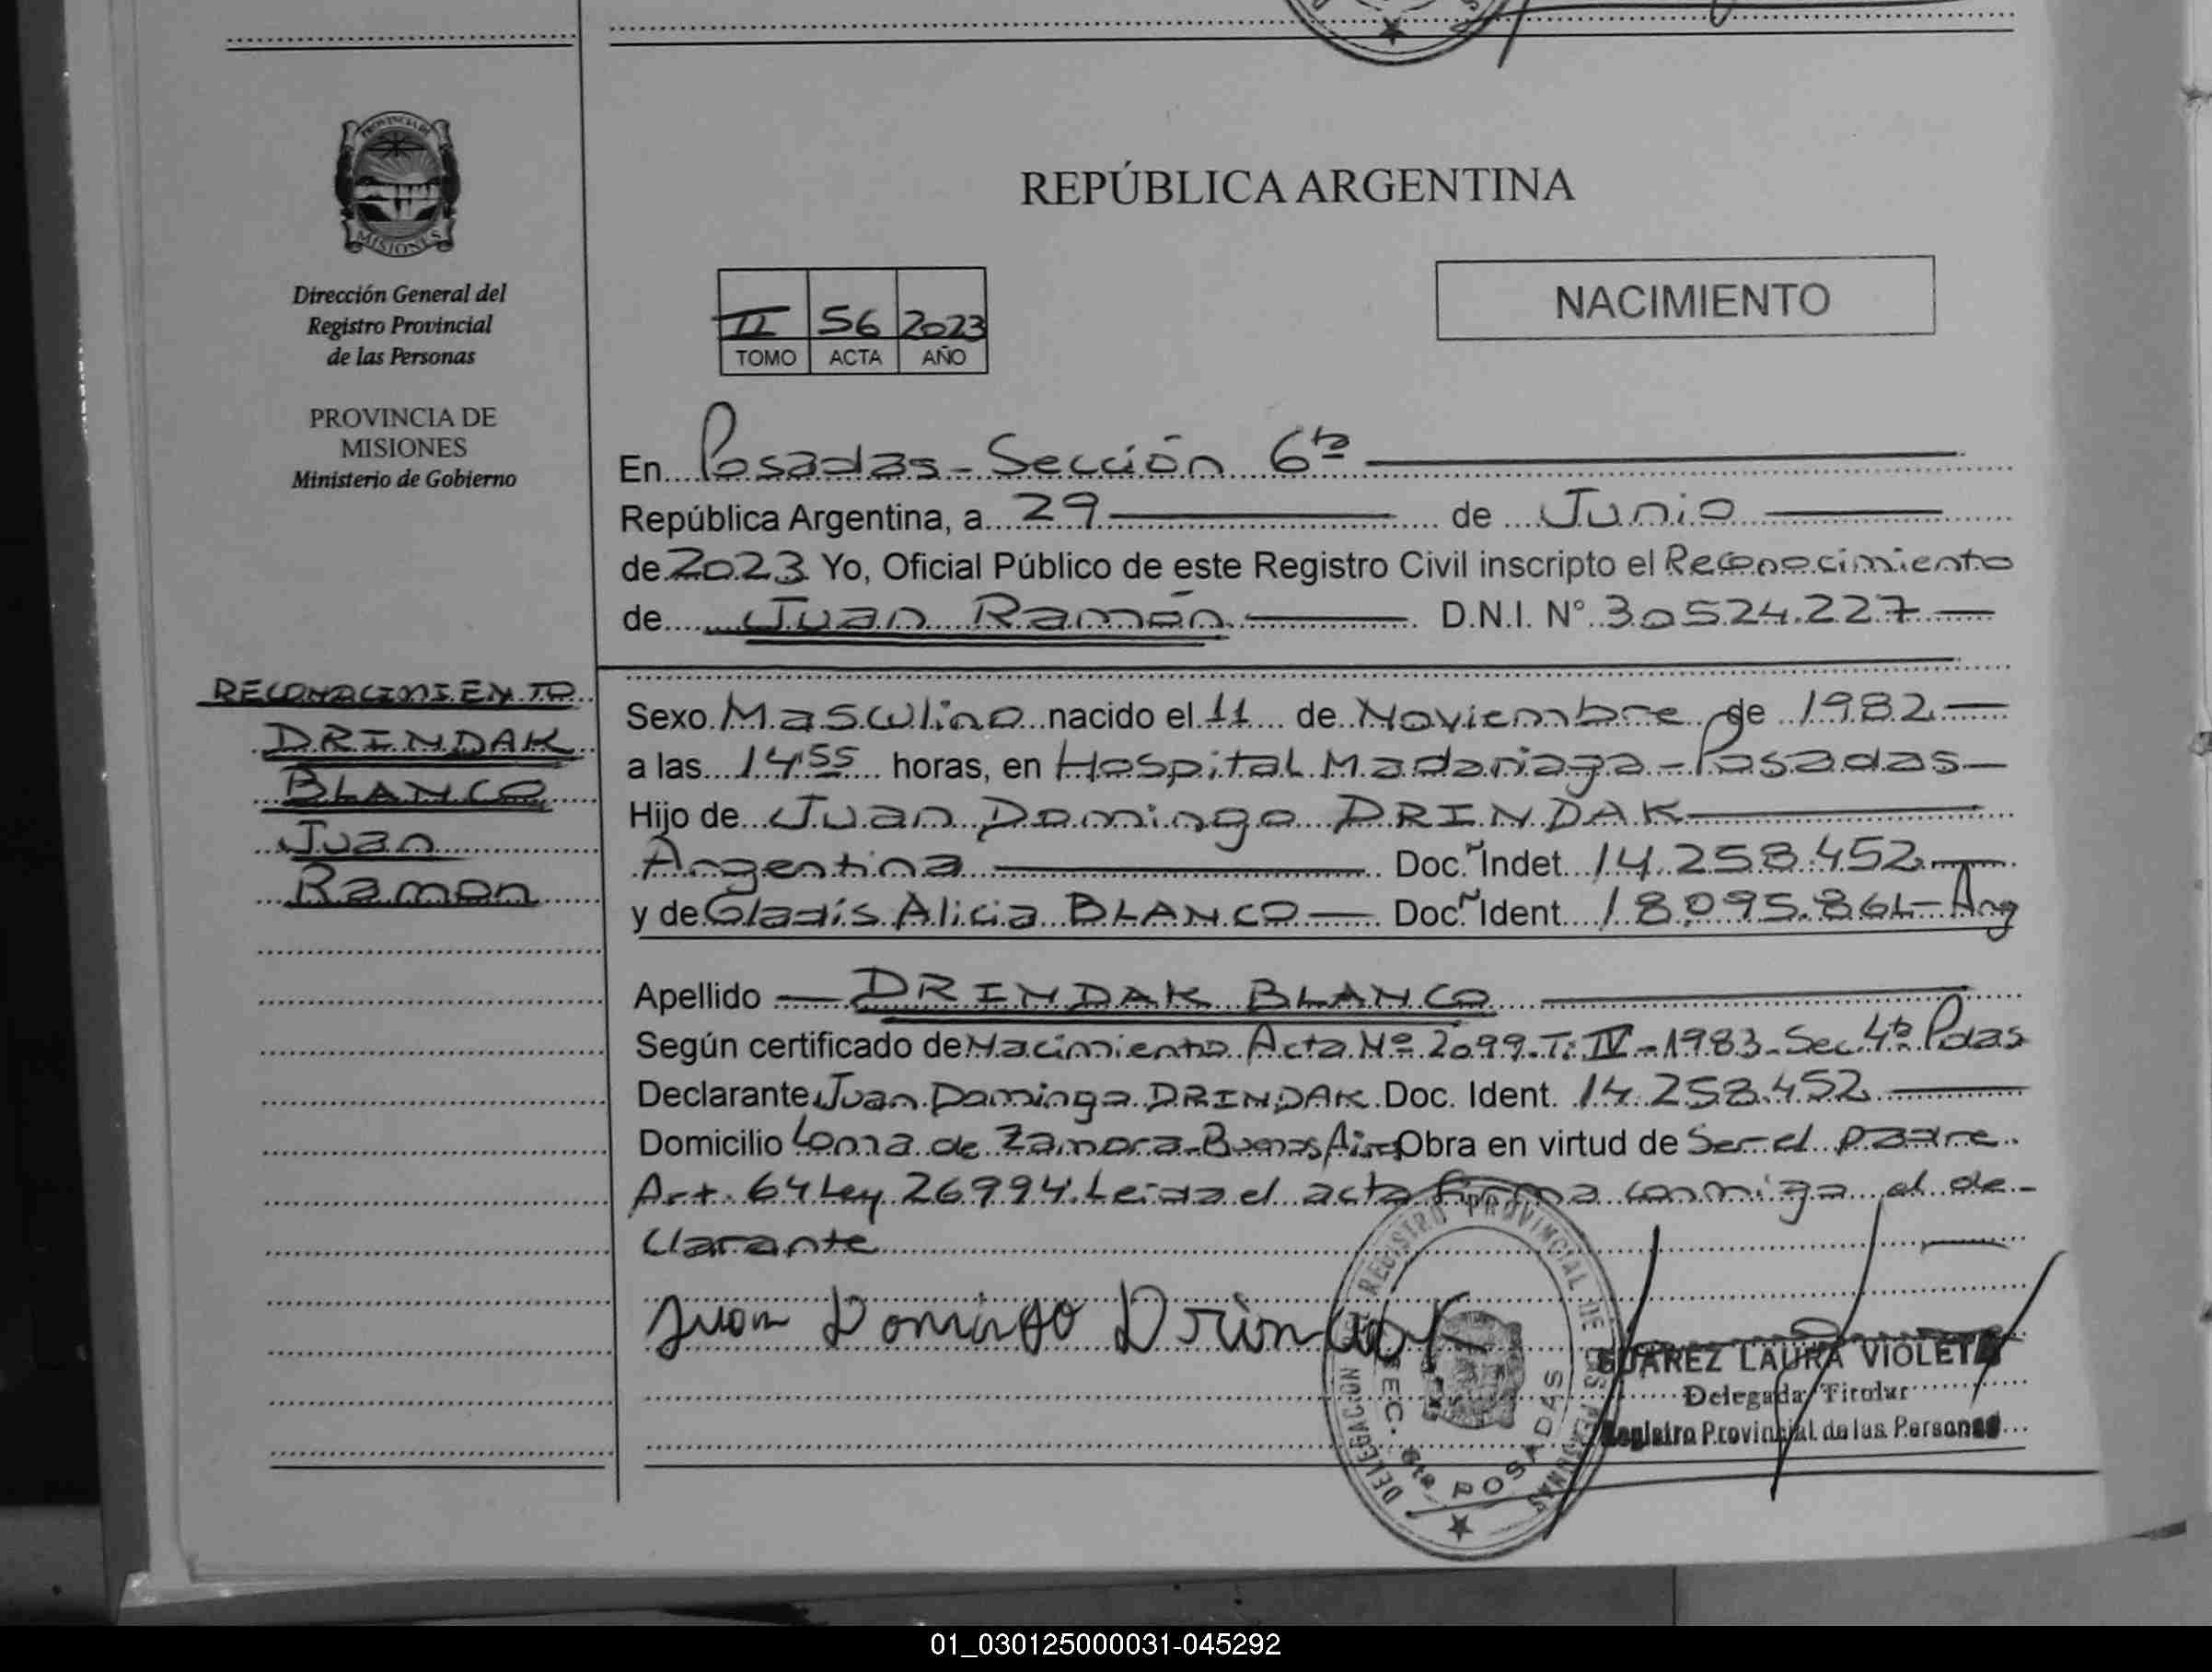 PROVINCIA DE
MISIONES
Dirección General del
Registro Provincial
de las Personas
PROVINCIA DE
MISIONES
Ministerio de Gobierno
RECONOCIMIENTO
DRINDAK
BLANCO
Juan
Ramon
REPÚBLICA ARGENTINA
NACIMIENTO
II 56 2023
TOMO ACTA AÑO
En Posadas - Sección 6ta
República Argentina, a 29 de Junio
de 2023 Yo, Oficial Público de este Registro Civil inscripto el Reconocimiento
de Juan Ramón D.N.I. N° 30524.227
Sexo Masculino nacido el 11 de Noviembre de 1982
a las 14 55 horas, en Hospital Madariaga - Posadas
Hijo de Juan Domingo DRINDAK
Argentina Doc. Indet. 14.258.452
y de Gladis Alicia BLANCO Doc. Ident. 18.095.861 - Arg
Apellido DRINDAK BLANCO
Según certificado de Nacimiento Acta Nº 2099 - T: IV - 1983 - Sec. 4ta Pdas
Declarante Juan Domingo DRINDAK Doc. Ident. 14.258.452
Domicilio Loma de Zamora - Buenos Aires Obra en virtud de Ser el padre
Art. 64 Ley 26994. Leida el acta firma conmigo el de-
clarante
Juan Domingo Drindak
DELEGACION REGISTRO PROVINCIAL DE LAS PERSONAS
SEC. 6ta POSADAS
SUAREZ LAURA VIOLETA
Delegada Titular
Registro Provincial de las Personas
01_030125000031-045292